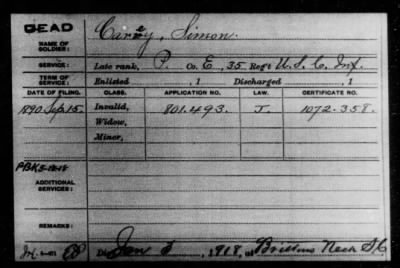 DEAD
NAME OF SOLDIER: Simon.
SERVICE: Late rank, P. Co. E, 35 Reg't U.S.C. Inf.
TERM OF SERVICE: Enlisted , 1 Discharged , 1
DATE OF FILING. CLASS. APPLICATION NO. LAW. CERTIFICATE NO.
1890 Sep 15. Invalid, 801.493. J. 1072.358.
Widow,
Minor,
ADDITIONAL SERVICES:
REMARKS:
Died Jan 3, 1918, at Brittons Neck S.C.